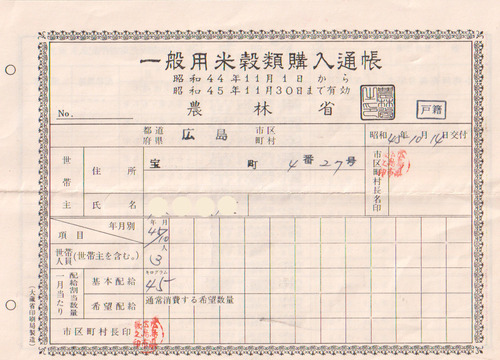 一般用米穀類購入通帳
昭和44年11月1日から
昭和45年11月30日まで有効
No.
農林省
戸籍
都道府県 広島 市区町村
昭和45年10月14日交付
世帯主
住所 宝町4番27号
市区町村長名印
氏名
年月別
項目
年月
45/10
世帯人員(世帯主を含む。)
人
3
配給割当数量一月当たり
基本配給
キログラム
45
希望配給
通常消費する希望数量
市区町村長印
(大蔵省印刷局製造)